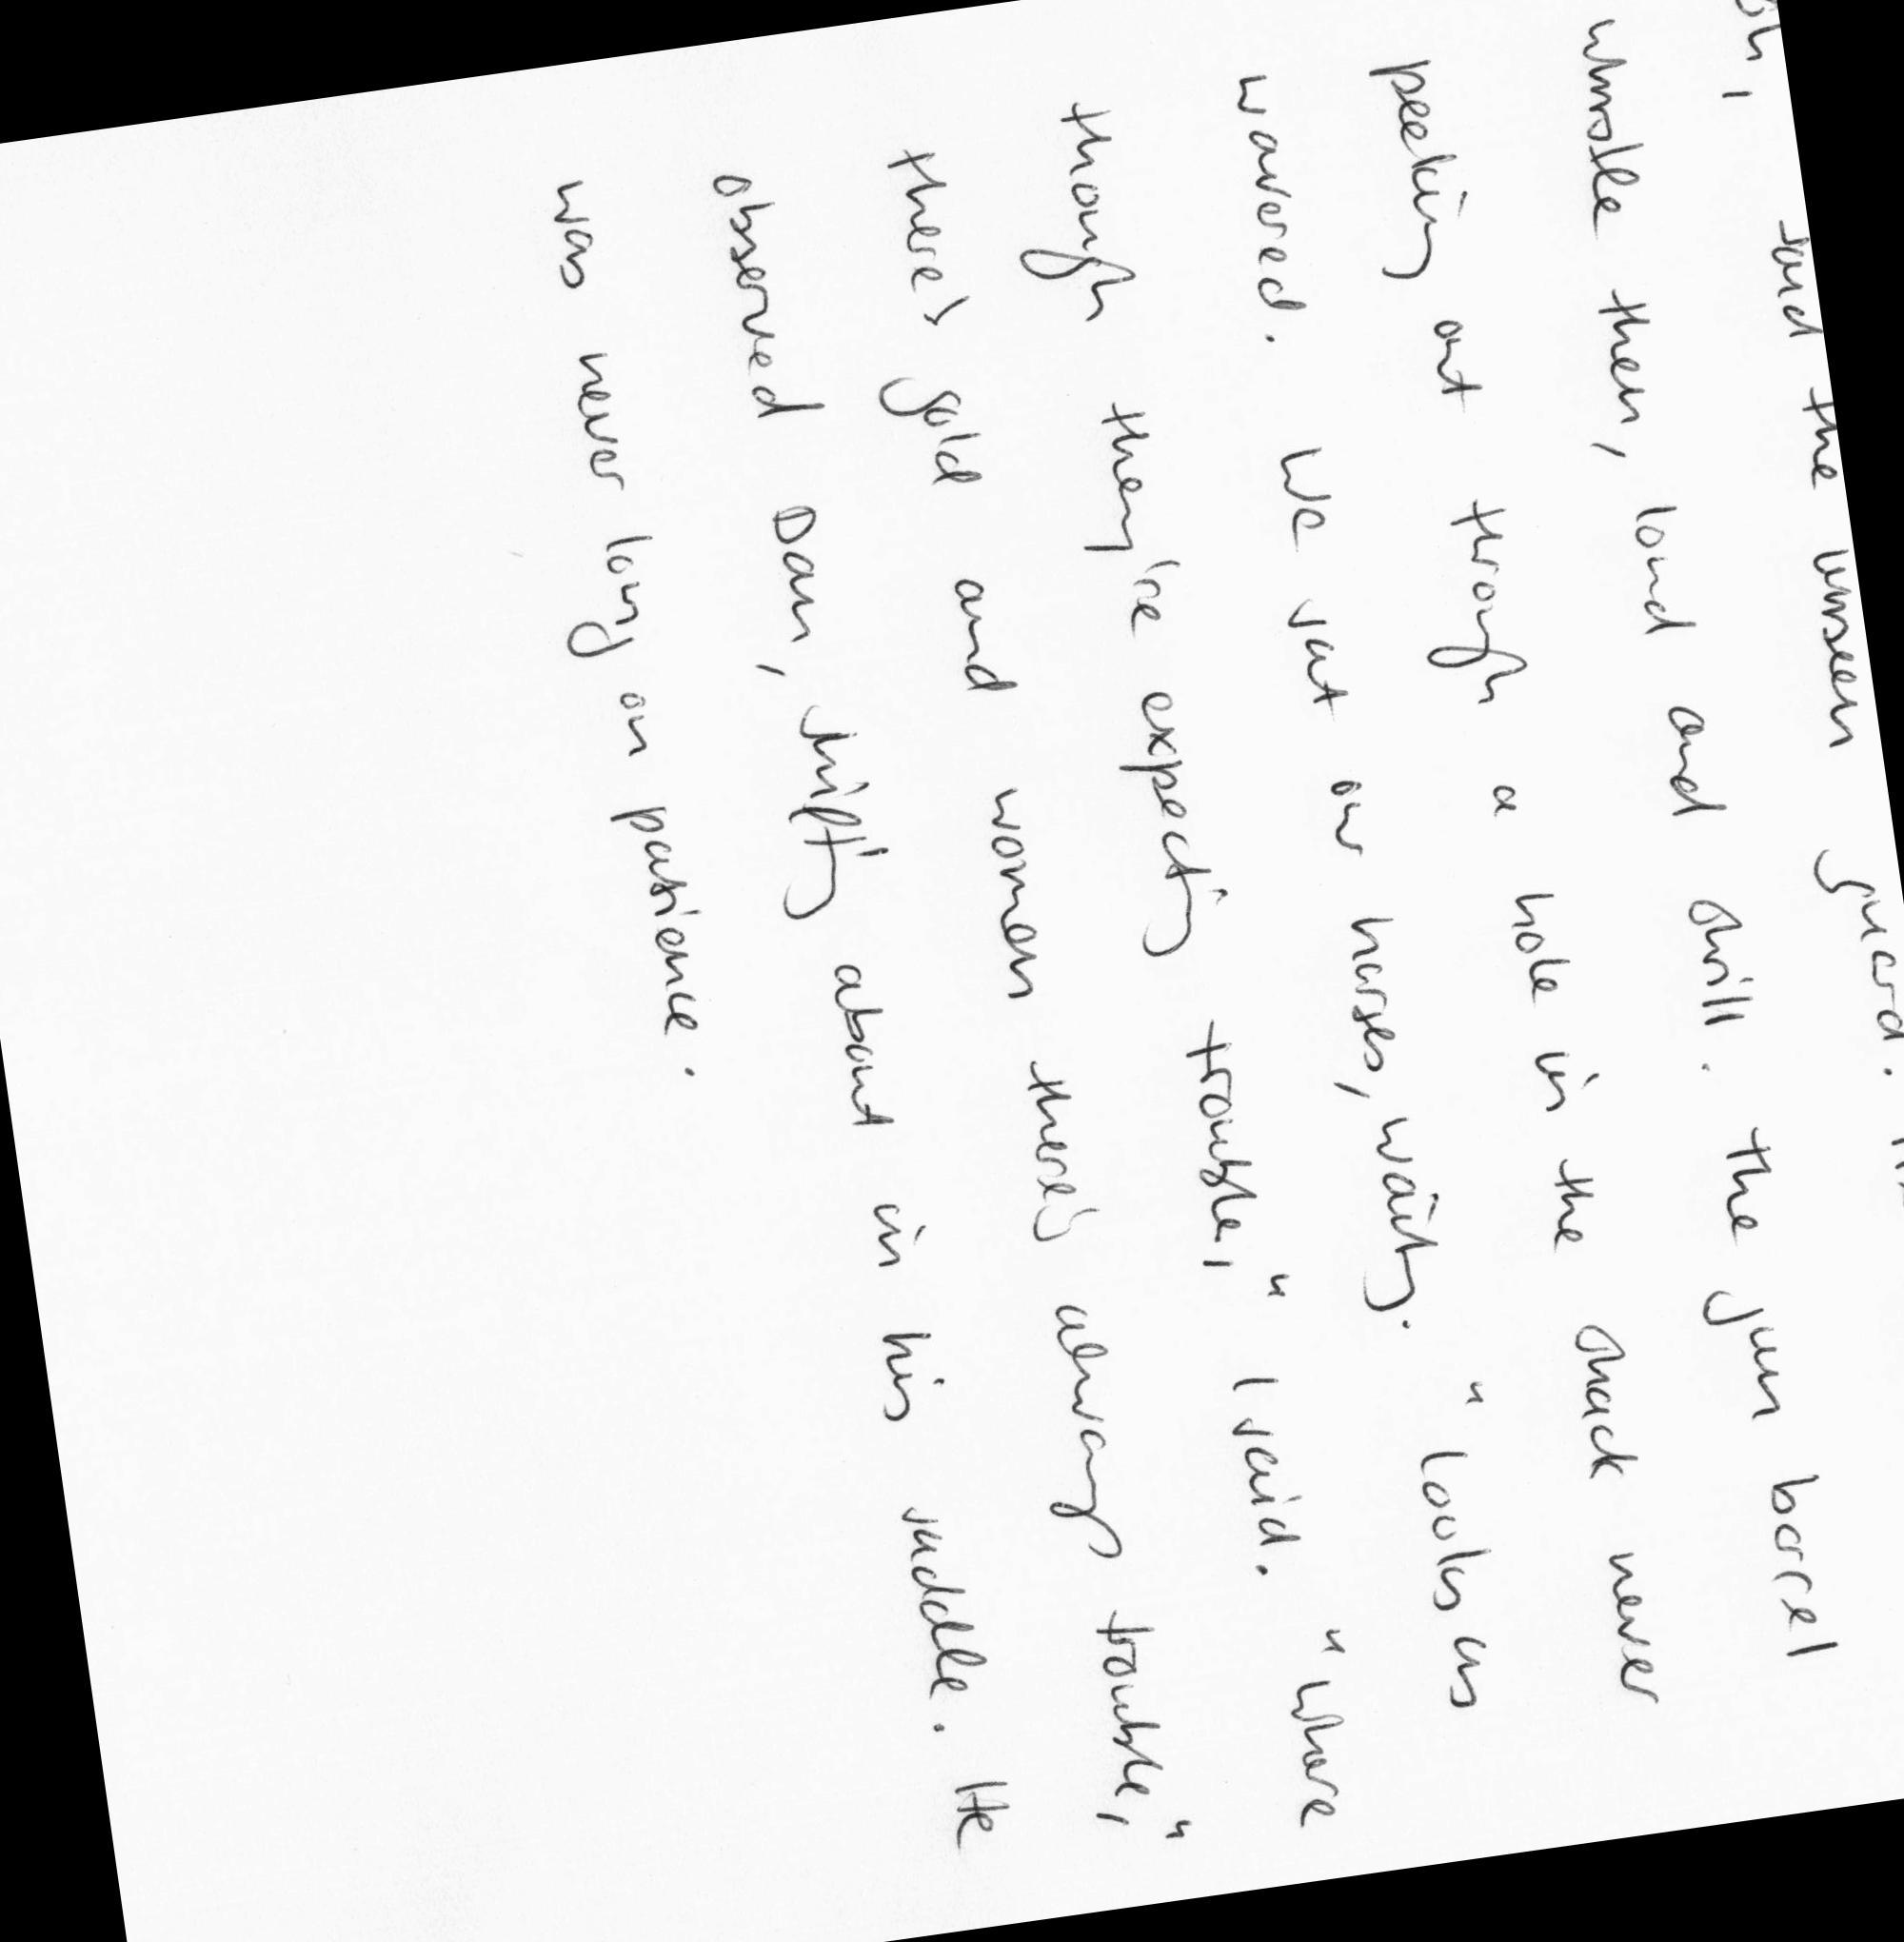 said the unseen guard.
whistle then, loud and shrill. The gun barrel
peeking out through a hole in the shack never
wavered. We sat our horses, waiting. "Looks as
though they're expecting trouble," I said. "Where
there's gold and women there's always trouble,"
observed Dan, shifting about in his saddle. He
was never long on patience.